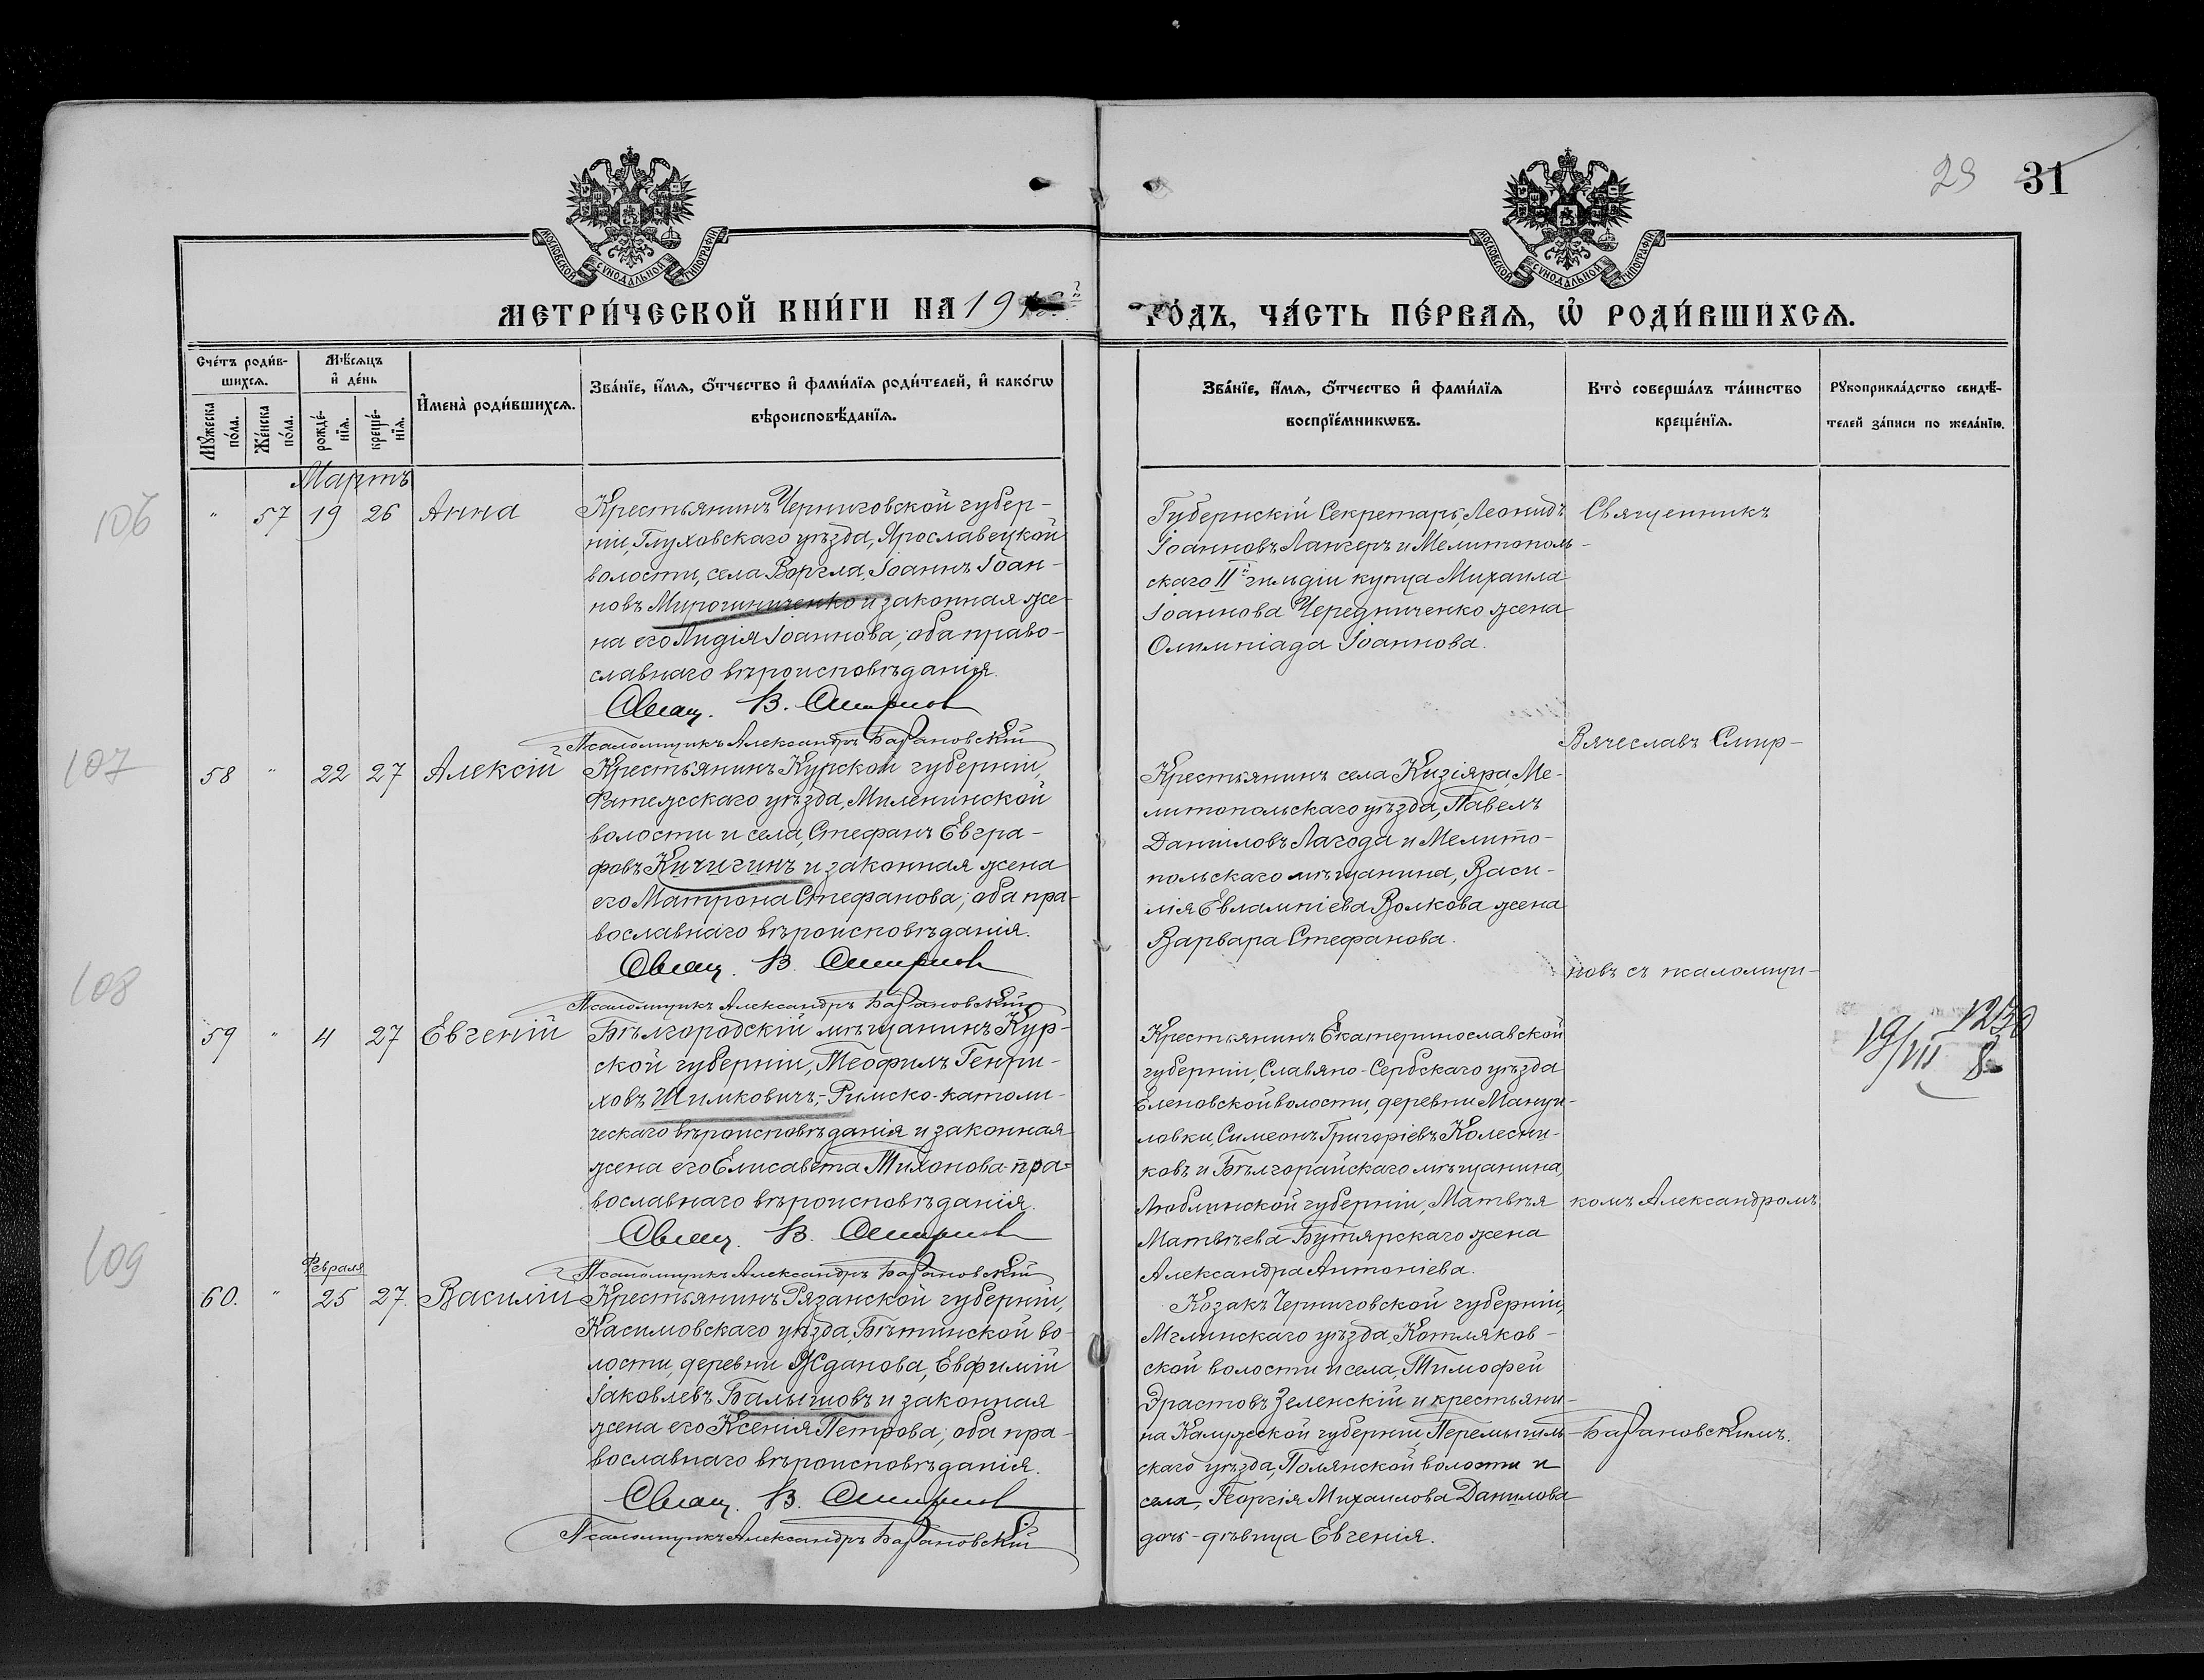 29 31
МОСКОВСКОЙ СѴНОДАЛЬНОЙ ТИПОГРАФІИ
МОСКОВСКОЙ СѴНОДАЛЬНОЙ ТИПОГРАФІИ
МЕТРИ́ЧЕСКОЙ КНИ́ГИ НА 19
ГО́ДЪ, ЧА́СТЬ ПЕ́РВАѦ, Ѡ҆ РОДИ́ВШИХСѦ.
Сче́тъ роди́в-
шихсѧ.
Мꙋ́жеска
по́ла.
Же́нска
по́ла.
Мѣ́сѧцъ
и҆ де́нь
рожде́-
нїѧ.
креще́-
нїѧ.
И҆мена̀ роди́вшихсѧ.
Зва́нїе, и҆́мѧ, ѻ҆́тчество и҆ фами́лїѧ роди́телей, и҆ како́гѡ
вѣроисповѣ́данїѧ.
Зва́нїе, и҆́мѧ, ѻ҆́тчество и҆ фами́лїѧ
воспрїе́мникѡвъ.
Кто̀ соверша́лъ та́инство
креще́нїѧ.
Рꙋкоприкла́дство свидѣ́-
телей за́писи по жела́нїю.
Мартъ
106
" 57 19 26 Анна
Крестьянинъ Черниговской губер-
ніи, Глуховскаго уѣзда, Ярославецкой
волости, села Воргла, Іоаннъ Іоан-
новъ Мирошниченко и законная же-
на его Лидія Іоаннова; оба право-
славнаго вѣроисповѣданія.
Свящ. В. Смирнов
Псаломщикъ Александръ Барановскій
Губернскій Секретарь, Леонидъ
Іоанновъ Лангеръ и Мелитополь-
скаго IIй гильдіи купца Михаила
Іоаннова Чередниченко жена
Олимпіада Іоаннова.
Священникъ
Вячеславъ Смир-
107
58 " 22 27 Алексій
Крестьянинъ Курской губерніи,
Фатежскаго уѣзда, Миленинской
волости и села, Стефанъ Евгра-
фовъ Кичигинъ и законная жена
его Матрона Стефанова; оба пра-
вославнаго вѣроисповѣданія.
Свящ. В. Смирнов
Псаломщикъ Александръ Барановскій
Крестьянинъ села Кизіяра, Ме-
литопольскаго уѣзда, Павелъ
Даніиловъ Лагода и Мелито-
польскаго мѣщанина, Васи-
лія Евлампіева Волкова жена
Варвара Стефанова.
новъ съ псаломщи-
108
59 " 4 27 Евгеній
Бѣлгородскій мѣщанинъ Кур-
ской губерніи, Теофилъ Генри-
ховъ Шимковичъ,-Римско-католи-
ческаго вѣроисповѣданія и законная
жена его Елисавета Тихонова-пра-
вославнаго вѣроисповѣданія.
Свящ. В. Смирнов
Псаломщикъ Александръ Барановскій
Крестьянинъ Екатеринославской
губерніи, Славяно-Сербскаго уѣзда
Еленовской волости, деревни Мануи-
ловки, Симеонъ Григоріевъ Колесни-
ковъ и Бѣлгорайскаго мѣщанина,
Люблинской губерніи, Матвѣя
Матвѣева Бутярскаго жена
Александра Антоніева.
комъ Александромъ
19/VII 8
109
Февраля
60. " 25 27. Василій
Крестьянинъ Рязанской губерніи,
Касимовскаго уѣзда, Бѣтинской во-
лости, деревни Жданова, Евфимій
Іаковлевъ Балышовъ и законная
жена его Ксенія Петрова; оба пра-
вославнаго вѣроисповѣданія.
Свящ. В. Смирнов
Псаломщикъ Александръ Барановскій
Козакъ Черниговской губерніи,
Мглинскаго уѣзда, Котляков-
ской волости и села, Тимофей
Эрастовъ Зеленскій и крестьяни-
на Калужской губерніи, Перемышль-
скаго уѣзда, Полянской волости и
села, Георгія Михаилова Данилова
дочь-дѣвица Евгенія.
Барановскимъ.